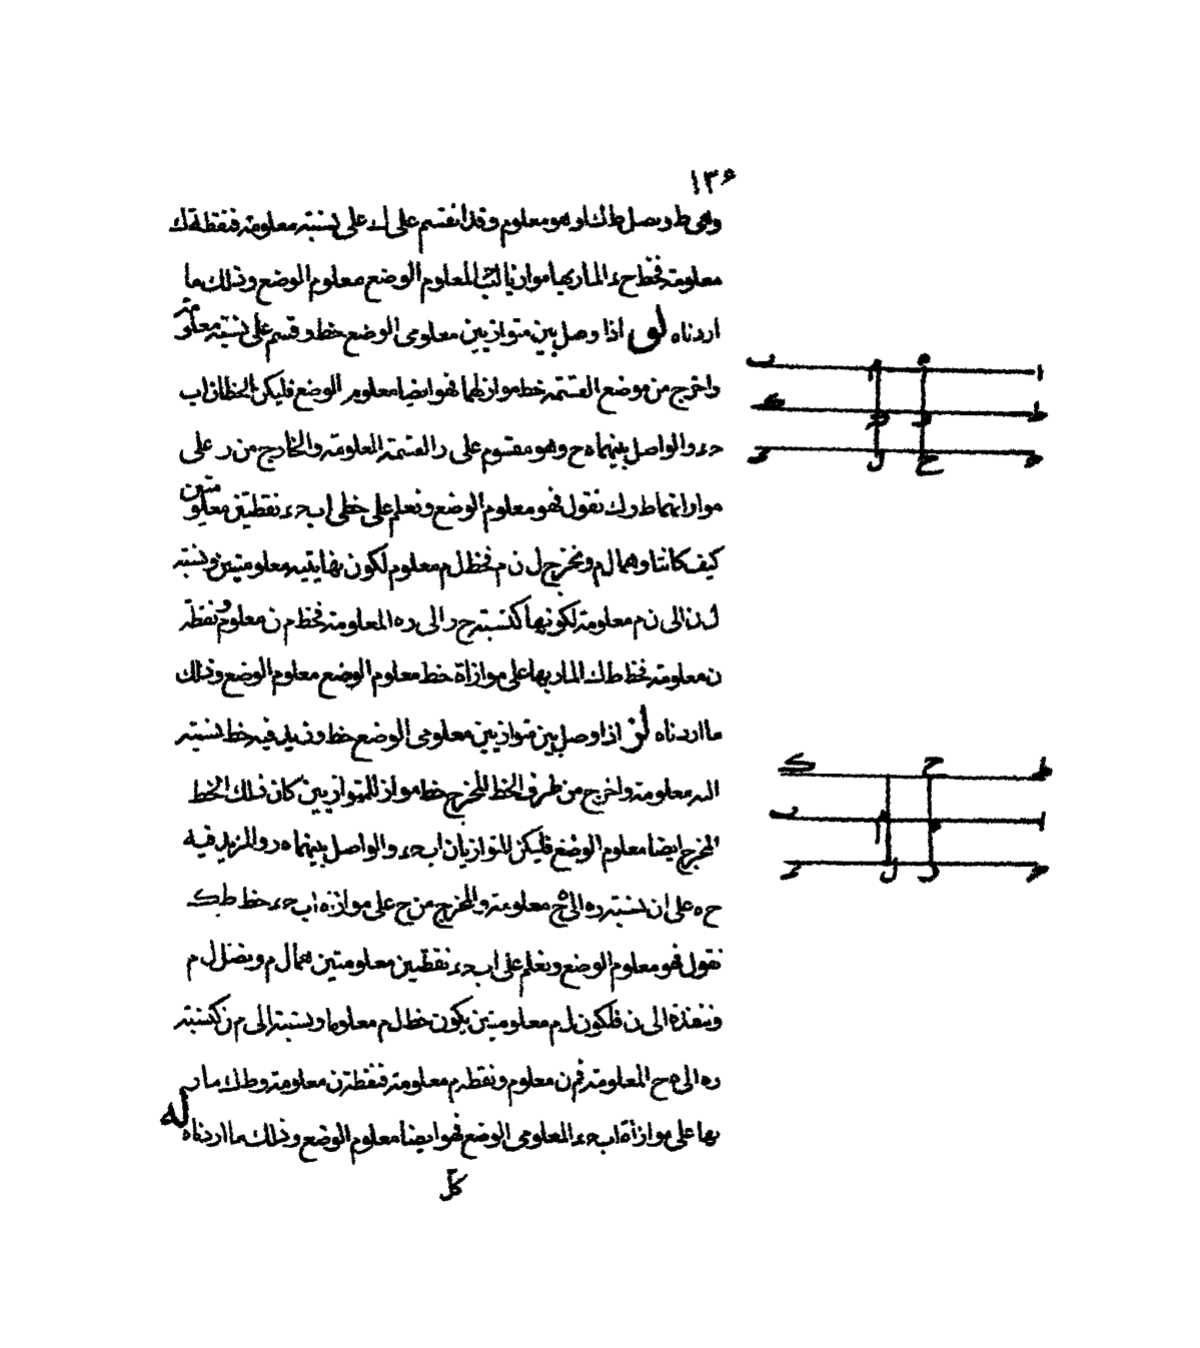 ١٣۶
وهى ط ونصل ط ك ا وهو معلوم وقد انقسم على ك على نسبة معلومة فنقطة ك
معلومة فخط ح ء المار بها موازيا ل ا ب المعلوم الوضع معلوم الوضع وذلك ما
اردناه لو اذا وصل بين متوازيين معلومى الوضع خط وقسم على نسبة معلومة
واخرج من موضع القسمة خط مواز لهما فهو ايضا معلوم الوضع فليكن الخطان ا ب
ح ء والواصل بينهما ه ح وهو مقسوم على ر القسمة المعلومة والخارج من ر على
موازاتهما ط ر ك نقول فهو معلوم الوضع ونعلم على خطى ا ب ح ء نقطتين معلومتين
كيف كانتا وهما ل م ونخرج ل ن م فخط ل م معلوم لكون نهايتيه معلومتين ونسبة
ل ن الى ن م معلومة لكونها كنسبة ح ر الى ر ه المعلومة فخط م ن معلوم ونقطة
ن معلومة فخط ط ك المار بها على موازاة خط معلوم الوضع معلوم الوضع وذلك
ما اردناه لز اذا وصل بين متوازيين معلومى الوضع خط وزيد فيه خط نسبته
اليه معلومة واخرج من طرف الخط المخرج خط مواز للمتوازيين كان ذلك الخط
المخرج ايضا معلوم الوضع فليكن المتوازيان ا ب ح ء والواصل بينهما ه ر والمزيد فيه
ح ه على ان نسبة ر ه الى ه ح معلومة والمخرج من ح على موازاة ا ب ح ء خط ط ك
نقول فهو معلوم الوضع ونعلم على ا ب ح ء نقطتين معلومتين هما ل م ونصل ل م
وننفذه الى ن فلكون ل م معلومتين يكون خط ل م معلوما ونسبته الى م ن كنسبة
ر ه الى ه ح المعلومة فم ن معلوم ونقطة م معلومة فنقطة ن معلومة و ط ك مار
بها على موازاة ا ب ح ء المعلومى الوضع فهو ايضا معلوم الوضع وذلك ما اردناه له
كل
ا ه م ب
ط ر ن ك
ح ح ل ء
ط ح ك
ا ه م ب
ح ر ل ء